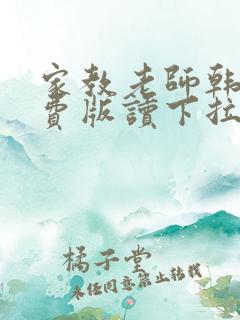 家教老師韩
费版讀下拉
橘子堂
未任同意禁止转载